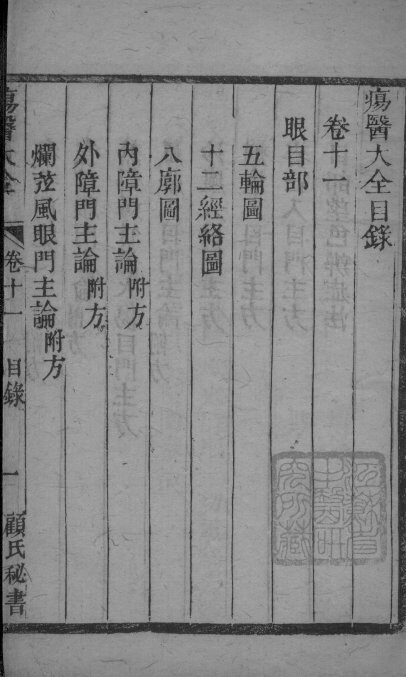 瘍醫大全目錄
卷十一
眼目部
五輪圖
十二經絡圖
八廓圖
內障門主論附方
外障門主論附方
爛弦風眼門主論附方
瘍醫大全
卷十一
目錄
一
顧氏秘書